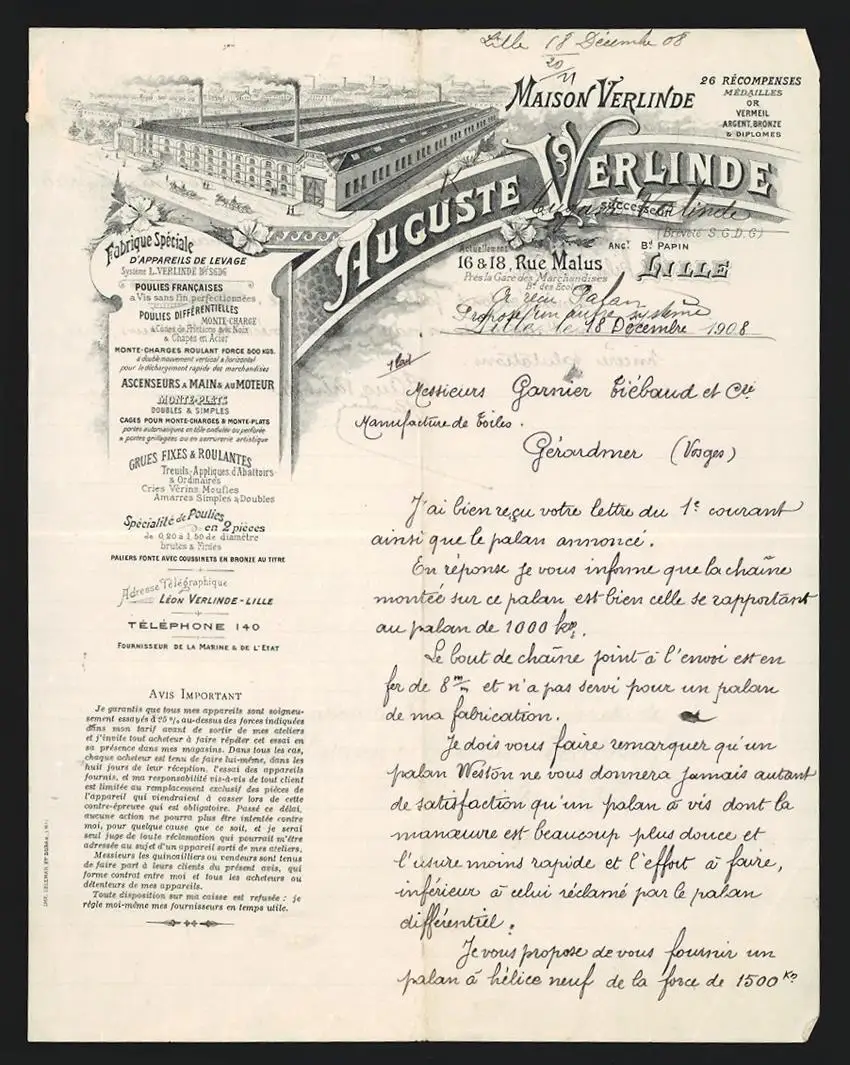 Lille 18 Décembre 08
20/11
MAISON VERLINDE
26 RÉCOMPENSES
MÉDAILLES
OR
VERMEIL
ARGENT, BRONZE
& DIPLOMES
AUGUSTE VERLINDE
SUCCESSEUR
Auguste Verlinde
(Breveté S.G.D.G)
Actuellement
16 & 18, RUE MALUS
Près la Gare des Marchandises
Bd des Ecoles
ANCt Bd PAPIN
LILLE
A reçu Palan
Propose un autre système
Lille, le 18 Décembre 1908
Fabrique Spéciale
D'APPAREILS DE LEVAGE
Système L. VERLINDE Bté S.G.D.G
POULIES FRANÇAISES
à Vis sans fin perfectionnées
POULIES DIFFÉRENTIELLES
MONTE-CHARGE
à Cônes de Frictions avec Noix
& Chapes en Acier
MONTE-CHARGES ROULANT FORCE 500 KGS.
à double mouvement vertical & horizontal
pour le déchargement rapide des marchandises
ASCENSEURS A MAIN & AU MOTEUR
MONTE-PLATS
DOUBLES & SIMPLES
CAGES POUR MONTE-CHARGES & MONTE-PLATS
portes automatiques en tôle ondulée ou perforée
& portes grillagées ou en serrurerie artistique
GRUES FIXES & ROULANTES
Treuils-Appliques d'Abattoirs
& Ordinaires
Crics Vérins Moufles
Amarres Simples & Doubles
Spécialité de Poulies
en 2 pièces
de 0,20 à 1,50 de diamètre
brutes & Finies
PALIERS FONTE AVEC COUSSINETS EN BRONZE AU TITRE
Adresse Télégraphique
LÉON VERLINDE-LILLE
TÉLÉPHONE 140
FOURNISSEUR DE LA MARINE & DE L'ETAT
AVIS IMPORTANT
Je garantis que tous mes appareils sont soigneu-
sement essayés à 25 % au-dessus des forces indiquées
dans mon tarif avant de sortir de mes ateliers
et j'invite tout acheteur à faire répéter cet essai en
sa présence dans mes magasins. Dans tous les cas,
chaque acheteur est tenu de faire lui-même, dans les
huit jours de leur réception, l'essai des appareils
fournis, et ma responsabilité vis-à-vis de tout client
est limitée au remplacement exclusif des pièces de
l'appareil qui viendraient à casser lors de cette
contre-épreuve qui est obligatoire. Passé ce délai,
aucune action ne pourra plus être intentée contre
moi, pour quelque cause que ce soit, et je serai
seul juge de toute réclamation qui pourrait m'être
adressée au sujet d'un appareil sorti de mes ateliers.
Messieurs les quincailliers ou vendeurs sont tenus
de faire part à leurs clients du présent avis, qui
forme contrat entre moi et tous les acheteurs ou
détenteurs de mes appareils.
Toute disposition sur ma caisse est refusée : je
règle moi-même mes fournisseurs en temps utile.
Messieurs Garnier Tiébaud et Cie
Manufacture de Toiles.
Gérardmer (Vosges)
J'ai bien reçu votre lettre du 1er courant
ainsi que le palan annoncé.
En réponse je vous informe que la chaîne
montée sur ce palan est bien celle se rapportant
au palan de 1000 ko.
Le bout de chaîne joint à l'envoi est en
fer de 8 m/m et n'a pas servi pour un palan
de ma fabrication.
Je dois vous faire remarquer qu'un
palan Weston ne vous donnera jamais autant
de satisfaction qu'un palan à vis dont la
manœuvre est beaucoup plus douce et
l'usure moins rapide et l'effort à faire,
inférieur à celui réclamé par le palan
différentiel.
Je vous propose de vous fournir un
palan à hélice neuf de la force de 1500 ko